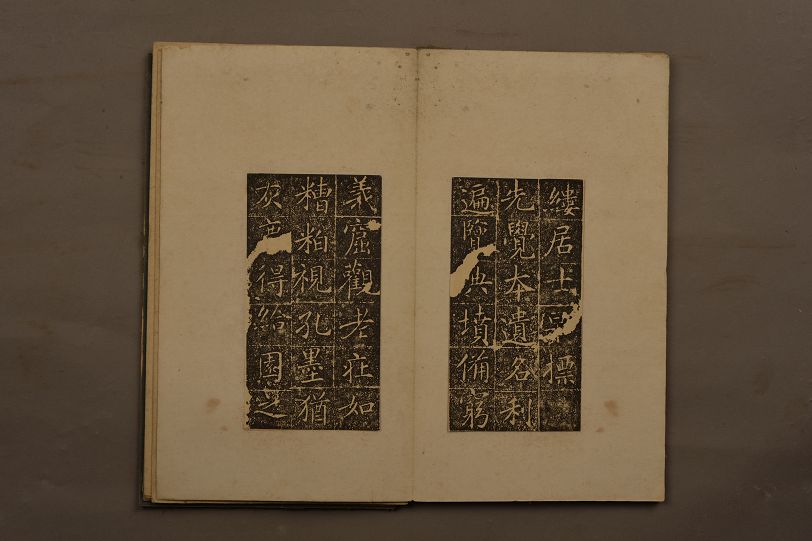 縷居士風標
先覺本遺名利
遍覽典墳備窮
義窟觀老莊如
糟粕視孔墨猶
灰塵得給園之